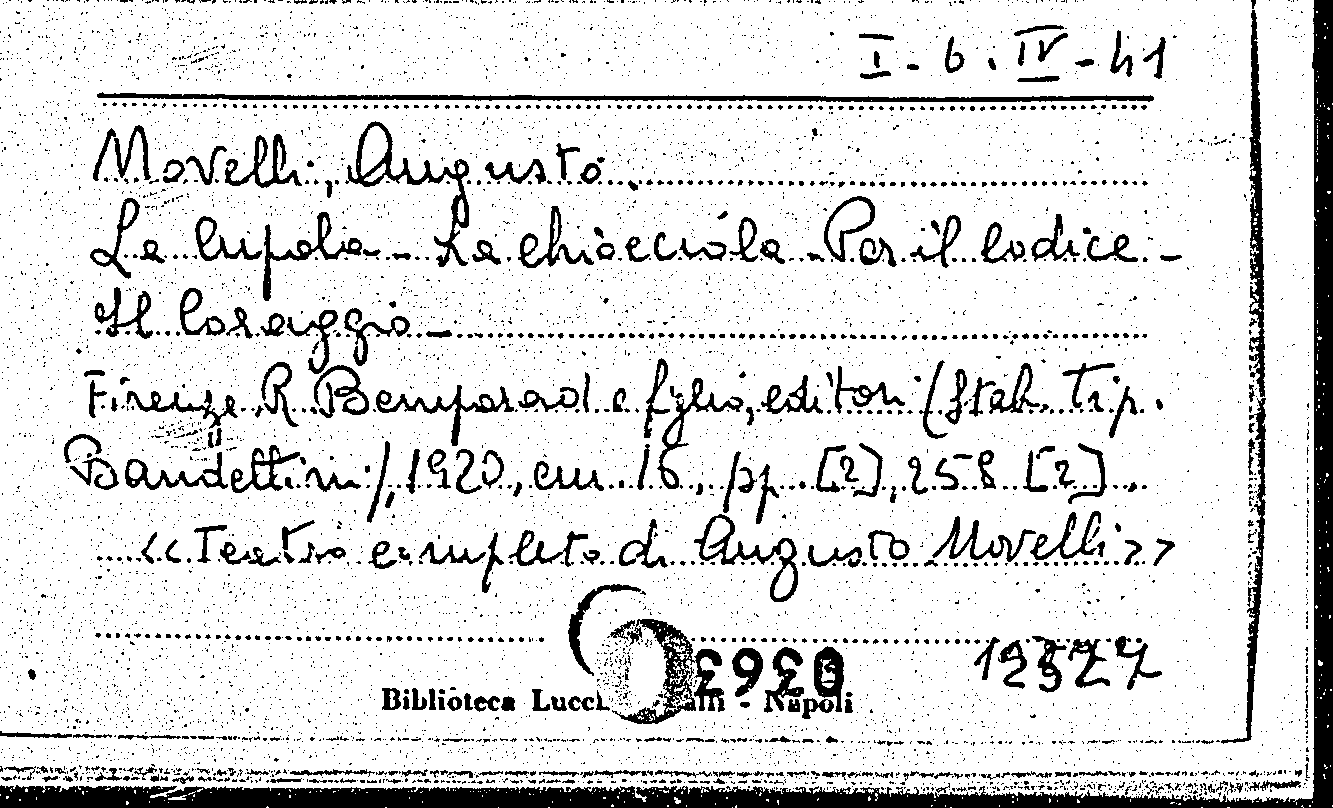 I - 6 . IV - 41
Novelli, Augusto.
La Cupola - La chiocciola - Per il codice -
Il Coraggio -
Firenze, R. Bemporad e figlio, editori (Stab. Tip.
Bandettini), 1920, cm. 16, pp. [2], 258 [2].
<<Teatro completo di Augusto Novelli>>
Biblioteca - Napoli